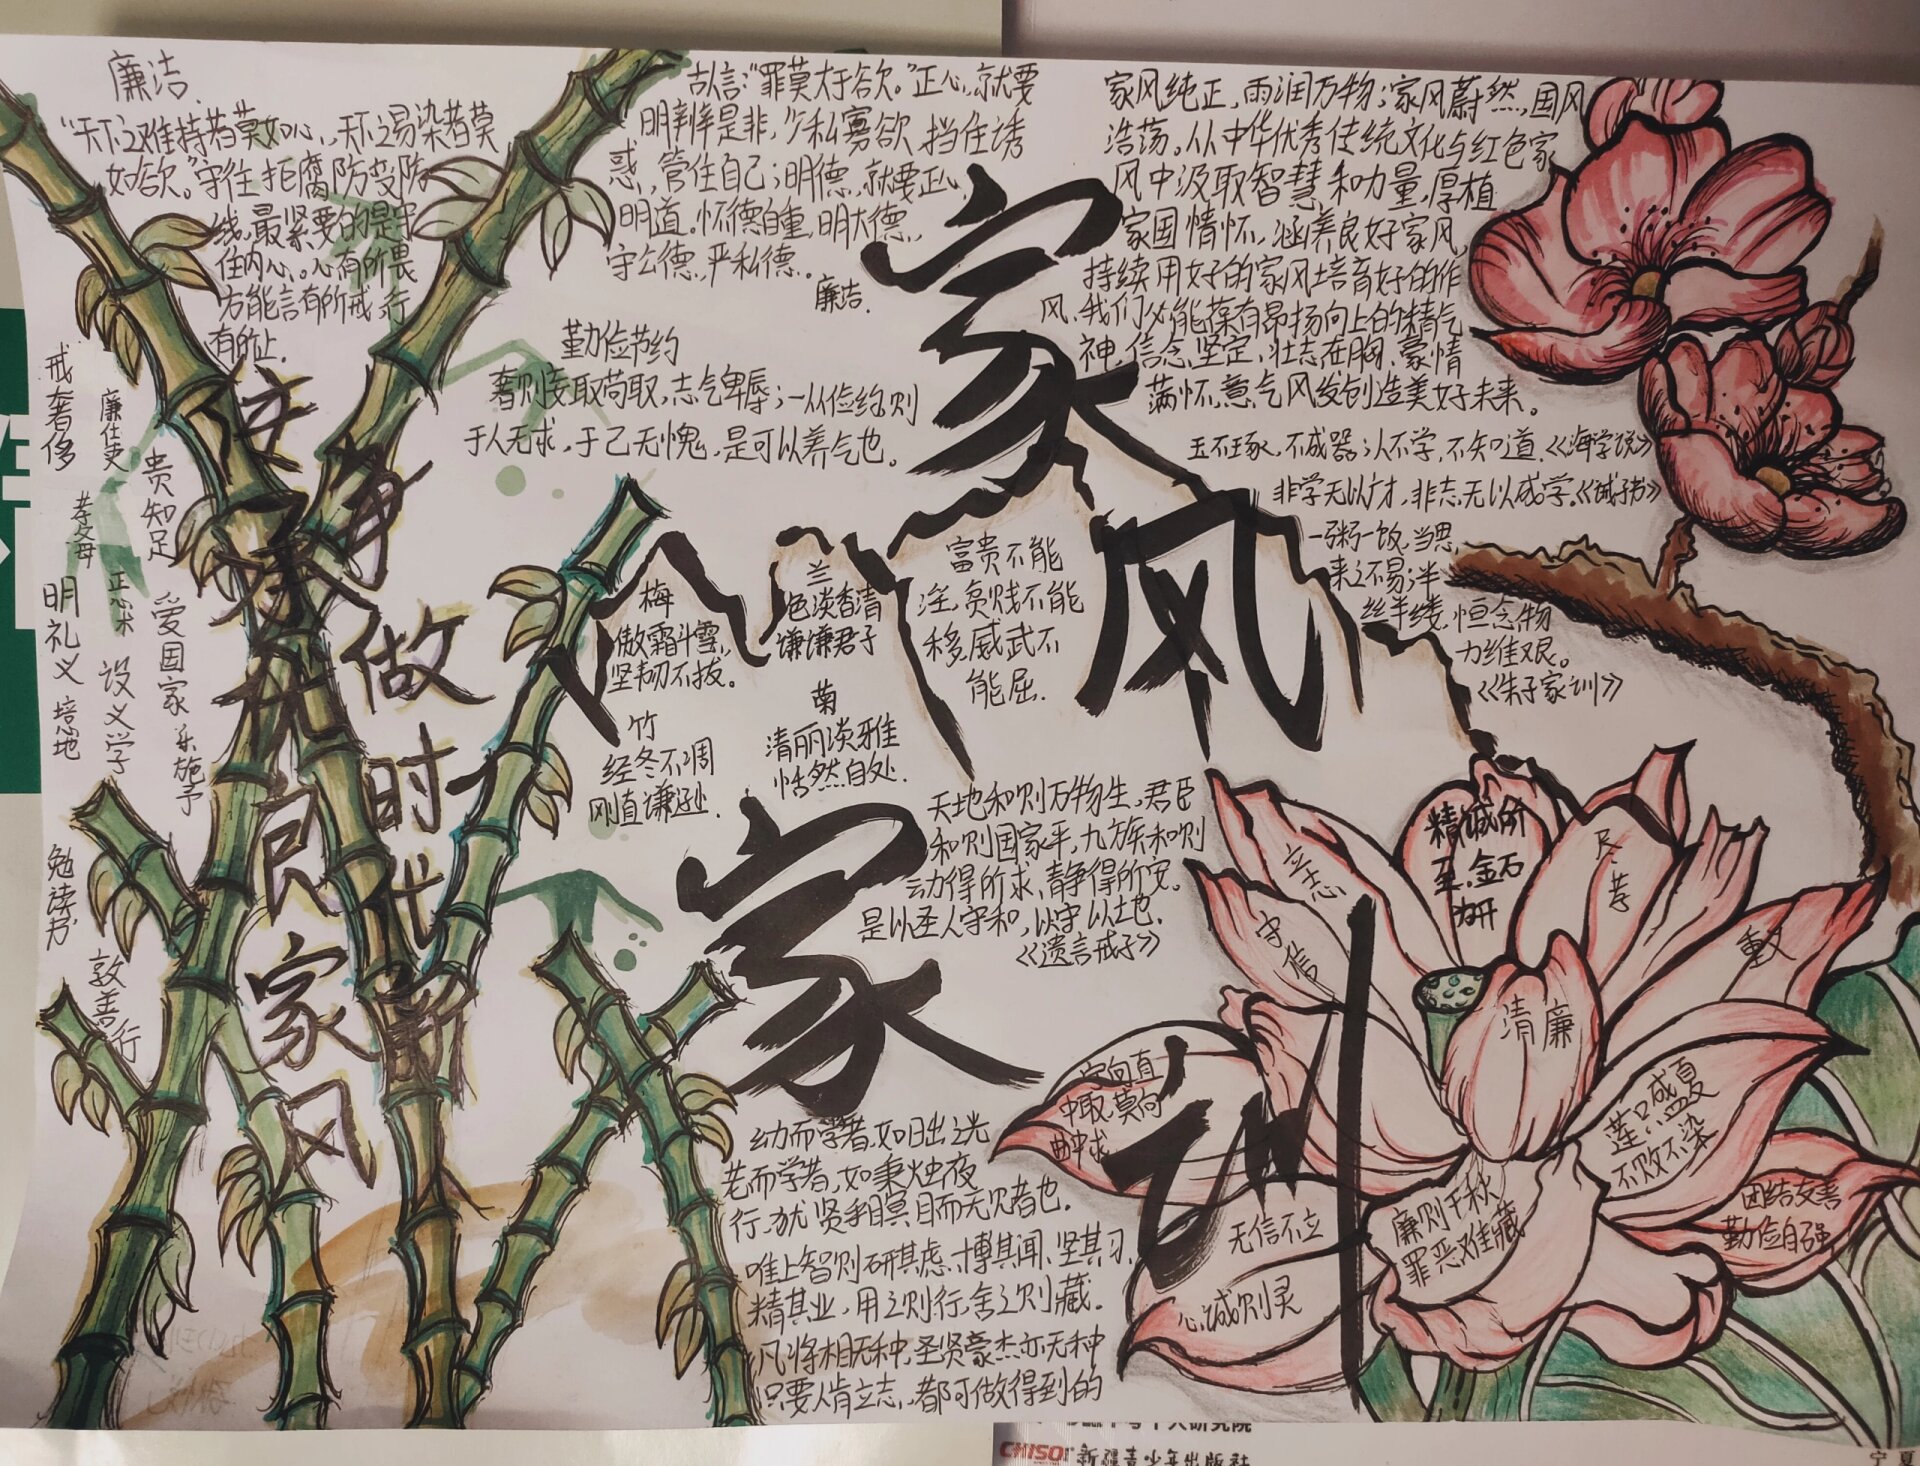 廉洁.
"天下之难持者莫如心,天下之易染者莫
如欲。"守住拒腐防变防
线,最紧要的是守
住内心。心有所畏
方能言有所戒,行
有所止.
古人言:"罪莫大于欲。"正心,就要
明辨是非,少私寡欲,挡住诱
惑,管住自己;明德,就要正心
明道。怀德自重,明大德,
守公德,严私德.
廉洁.
家风纯正,雨润万物;家风蔚然,国风
浩荡。从中华优秀传统文化与红色家
风中汲取智慧和力量,厚植
家国情怀,涵养良好家风,
持续用好的家风培育好的作
风.我们必能葆有昂扬向上的精气
神,信念坚定、壮志在胸、豪情
满怀、意气风发创造美好未来。
勤俭节约
奢则妄取苟取,志气卑辱;一从俭约,则
于人无求,于己无愧,是可以养气也。
玉不琢,不成器;人不学,不知道.《诲学说》
非学无以广才,非志无以成学.《诫子书》
一粥一饭,当思
来之不易;半
丝半缕,恒念物
力维艰。
《朱子家训》
家风
家训
戒奢侈
廉仕吏
贵知足
孝父母
正心术
明礼义
爱国家
设义学
培心地
乐施予
勉读书
敦善行
传承优良家风
争做时代新人
梅
傲霜斗雪,
坚韧不拔。
兰
色淡香清
谦谦君子
竹
经冬不凋
刚直谦逊.
菊
清丽淡雅
恬然自处.
富贵不能
淫,贫贱不能
移,威武不
能屈.
天地和则万物生,君臣
和则国家平,九族和则
动得所求,静得所安。
是以圣人守和,以守以土也.
《遗言戒子》
幼而学者,如日出之光
老而学者,如秉烛夜
行,犹贤乎瞑目而无见者也.
唯上智则研其虑、博其闻、坚其习、
精其业,用之则行,舍之则藏.
凡将相无种,圣贤豪杰亦无种
只要人肯立志,都可做得到的
立志
守信
精诚所
至,金石
为开
尽孝
重义
清廉
宁向直
中取,莫向
曲中求
无信不立
心诚则灵
廉则千秋
罪恶难藏
莲口盛夏
不败不染
团结友善
勤俭自强
CHISOI
新疆青少年出版社
宁夏